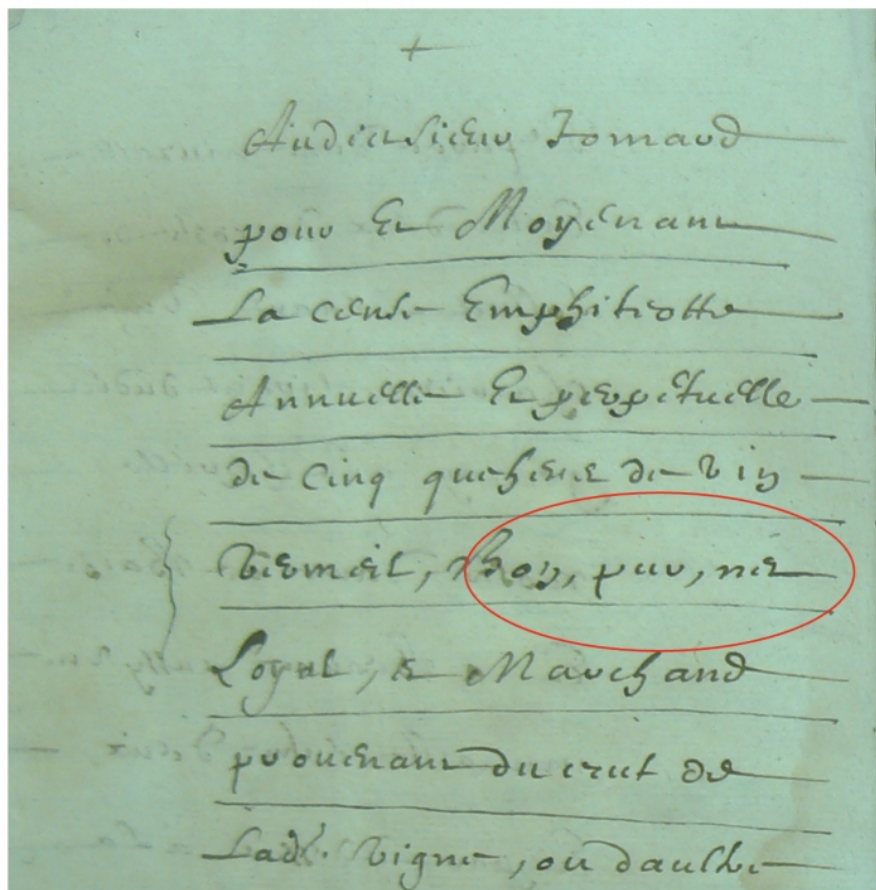 +
Audict sieur Jomard
pour Et Moyenant
La cense Emphiteotte
Annuelle Et perpetuelle
de Cinq quehene de vin
vermeil, Bon, pur, ne
Loyal, & Marchand
prouenant du crut de
Ladᵉ. vigne, ou daultre